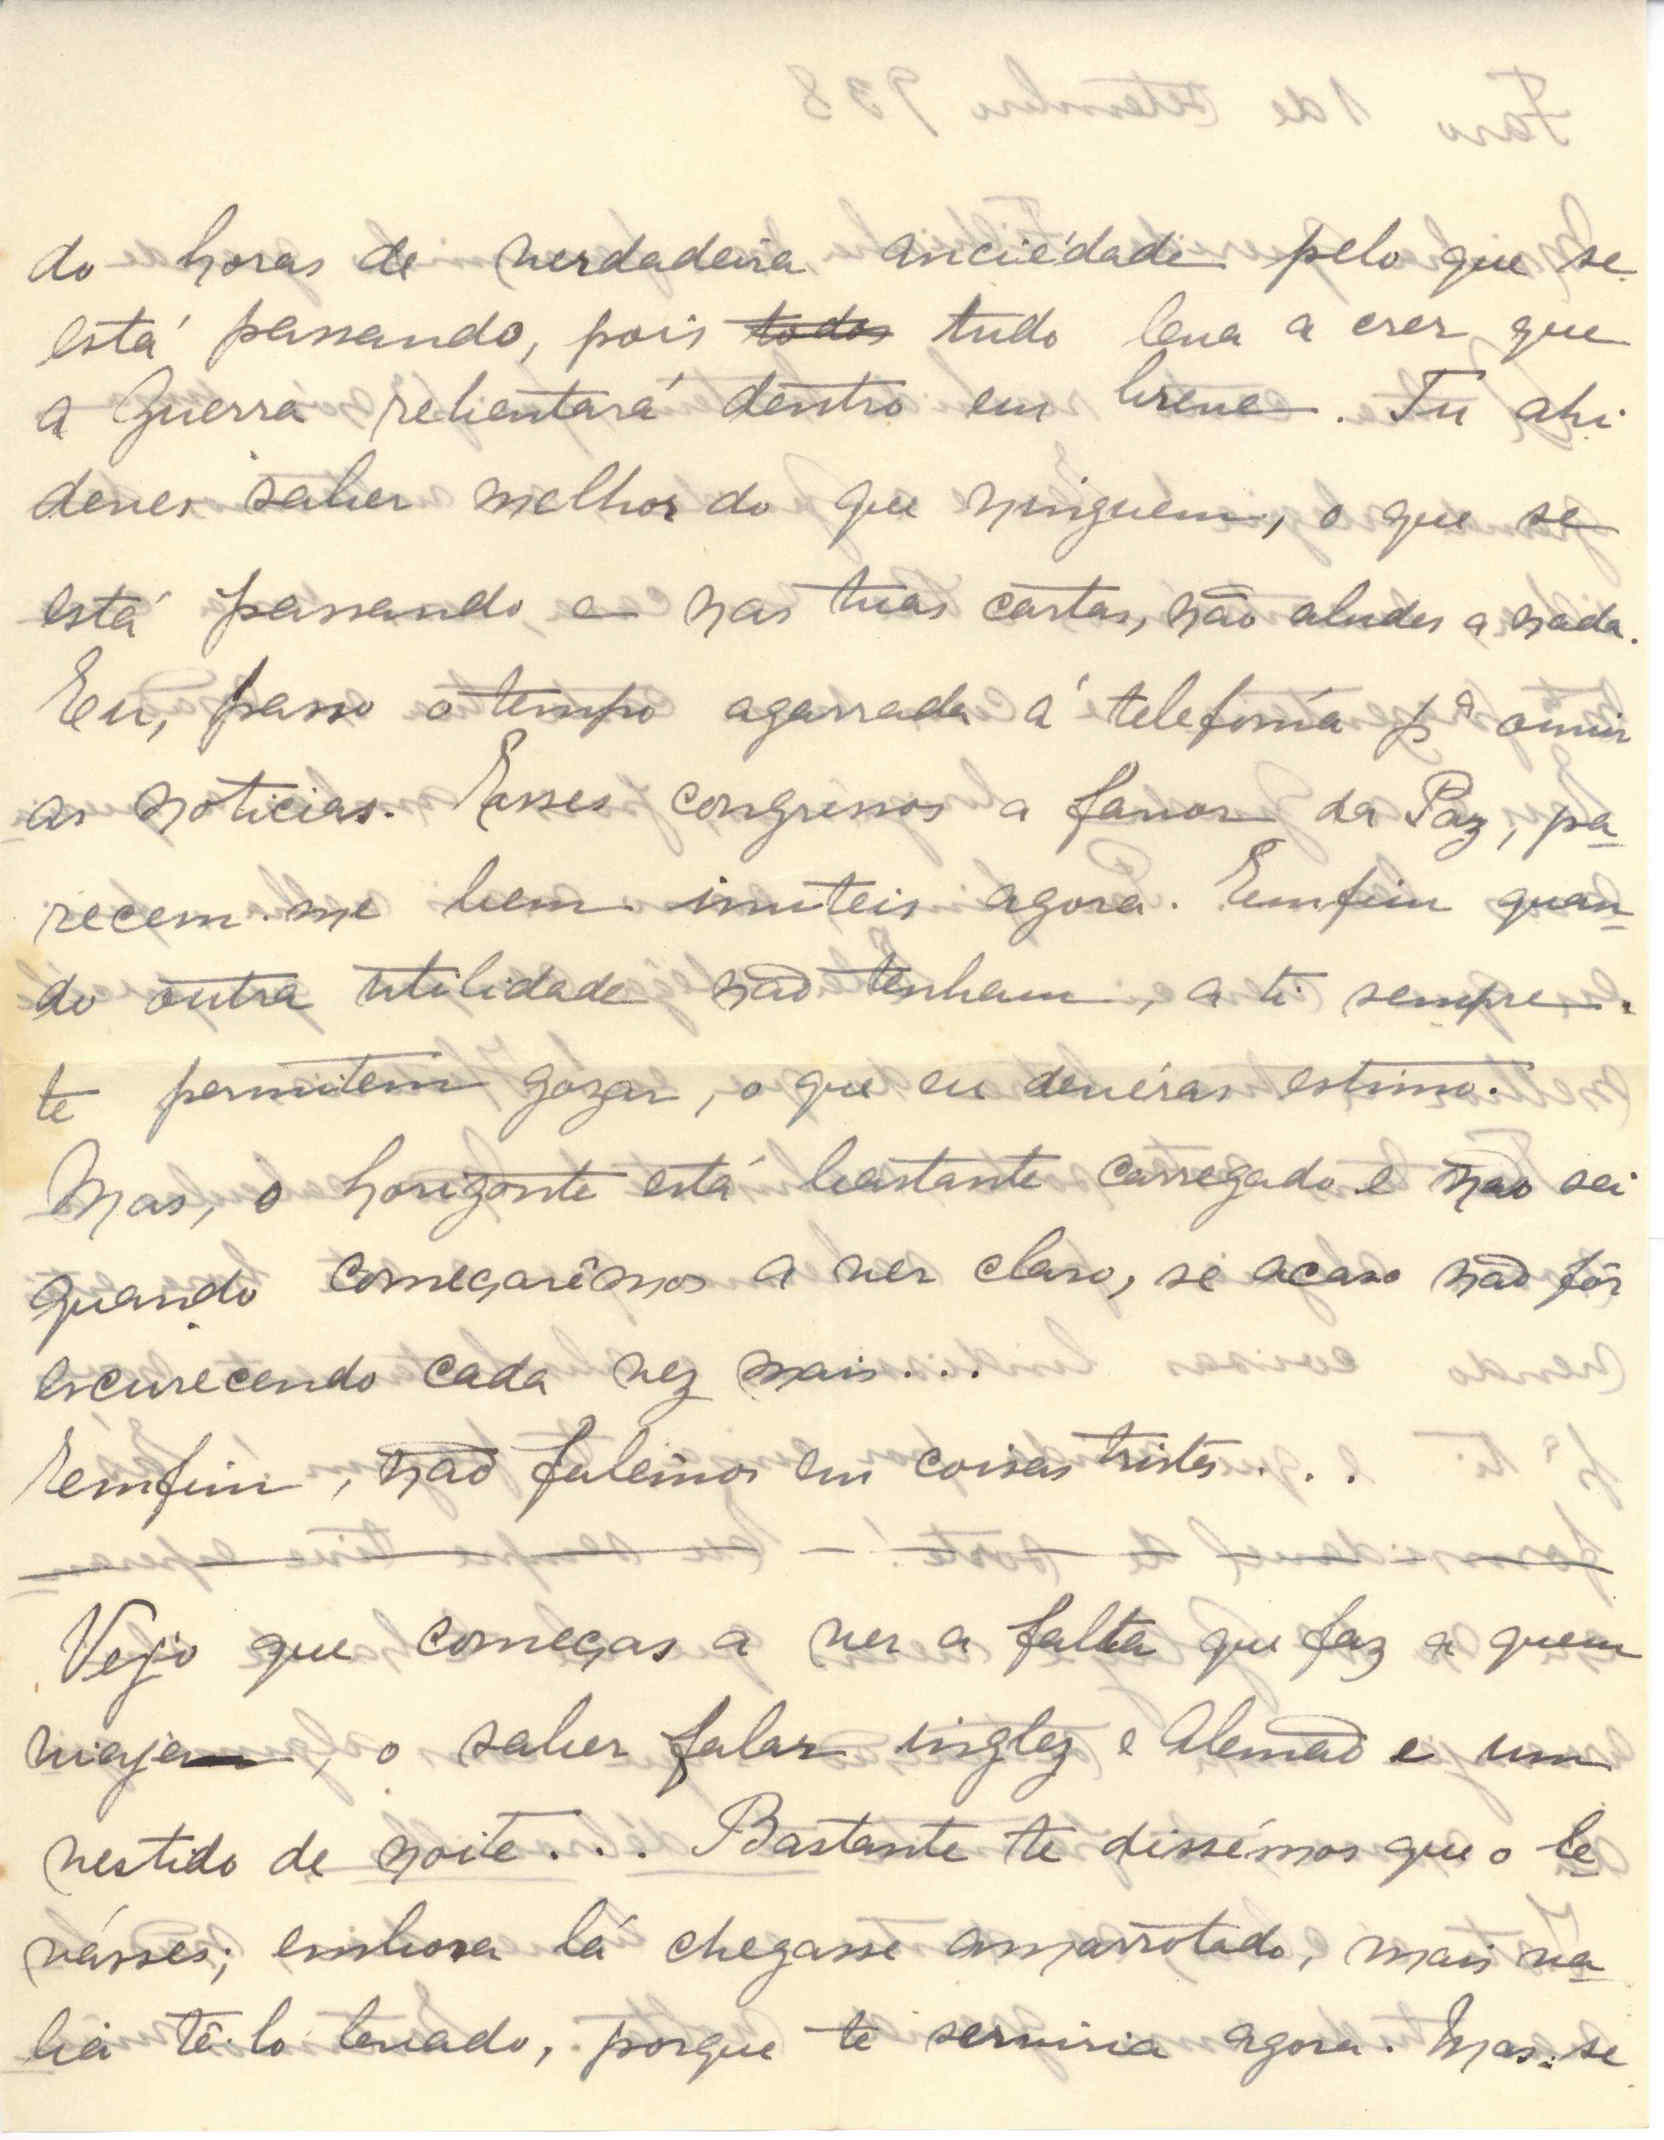 do horas de verdadeira anciédade pelo que se
está passando, pois todos tudo leva a crer que
a Guerra rebentará dentro em breve. Tu ahi
deves saber melhor do que ninguem, o que se
está passando e nas tuas cartas, não aludes a nada.
Eu, passo o tempo agarrada á telefonía pª ouvir
as noticias. Esses congressos a favor da Paz, pa-
recem-me bem inuteis agora. Emfim quan-
do outra utilidade não tenham, a ti sempre
te permitem gozar, o que eu devéras estimo.
Mas, o horizonte está bastante carregado e não sei
quando começarêmos a ver claro, se acaso não fôr
escurecendo cada vez mais...
Emfim, não falêmos em coisas tristes...
Vejo que começas a ver a falta que faz a quem
viaja, o saber falar inglez e Alemão e um
vestido de noite... Bastante te dissémos que o le-
vásses; embora lá chegasse amarrotado, mais va-
lia tê-lo levado, porque te serviria agora. Mas. se
Faro 1 de Setembro 938